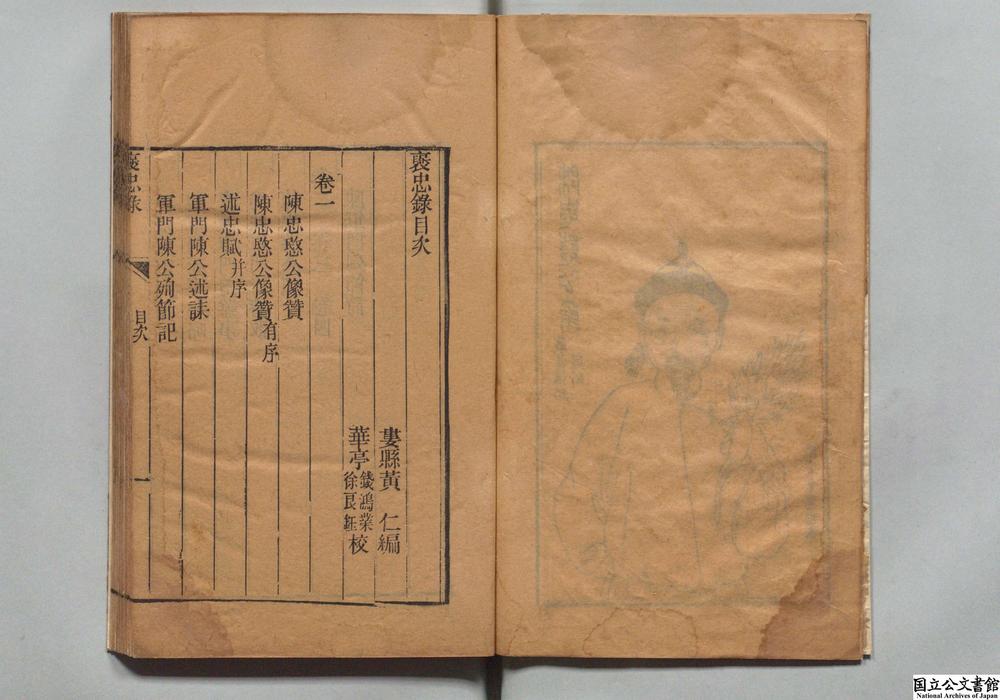 褒忠錄目次
婁縣黃 仁編
華亭錢鴻業徐良鈺校
卷一
陳忠愍公像贊
陳忠愍公像贊有序
述忠賦并序
軍門陳公述誄
軍門陳公殉節記
褒忠錄
目次
一
国立公文書館
National Archives of Japan